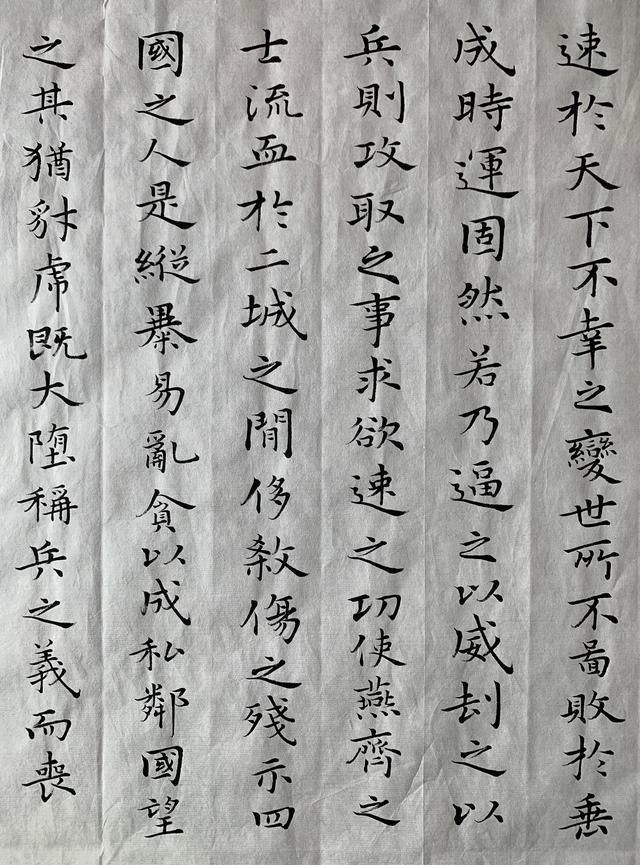 速於天下不幸之變世所不啚敗於垂
成時運固然若乃逼之以威刦之以
兵則攻取之事求欲速之功使燕齊之
士流血於二城之閒侈殺傷之殘示四
國之人是縱暴易亂貪以成私鄰國望
之其猶豺虎既大墮稱兵之義而喪